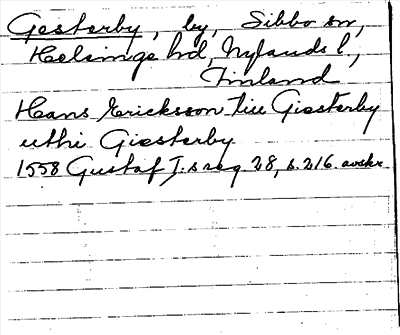 Gesterby, by, Sibbo sn,
Helsinge hd, Nylands l.,
Finland
Hans Ericksson till Giesterby
uthi Giesterby
1558 Gustaf I:s reg. 28, s. 216. avskr.